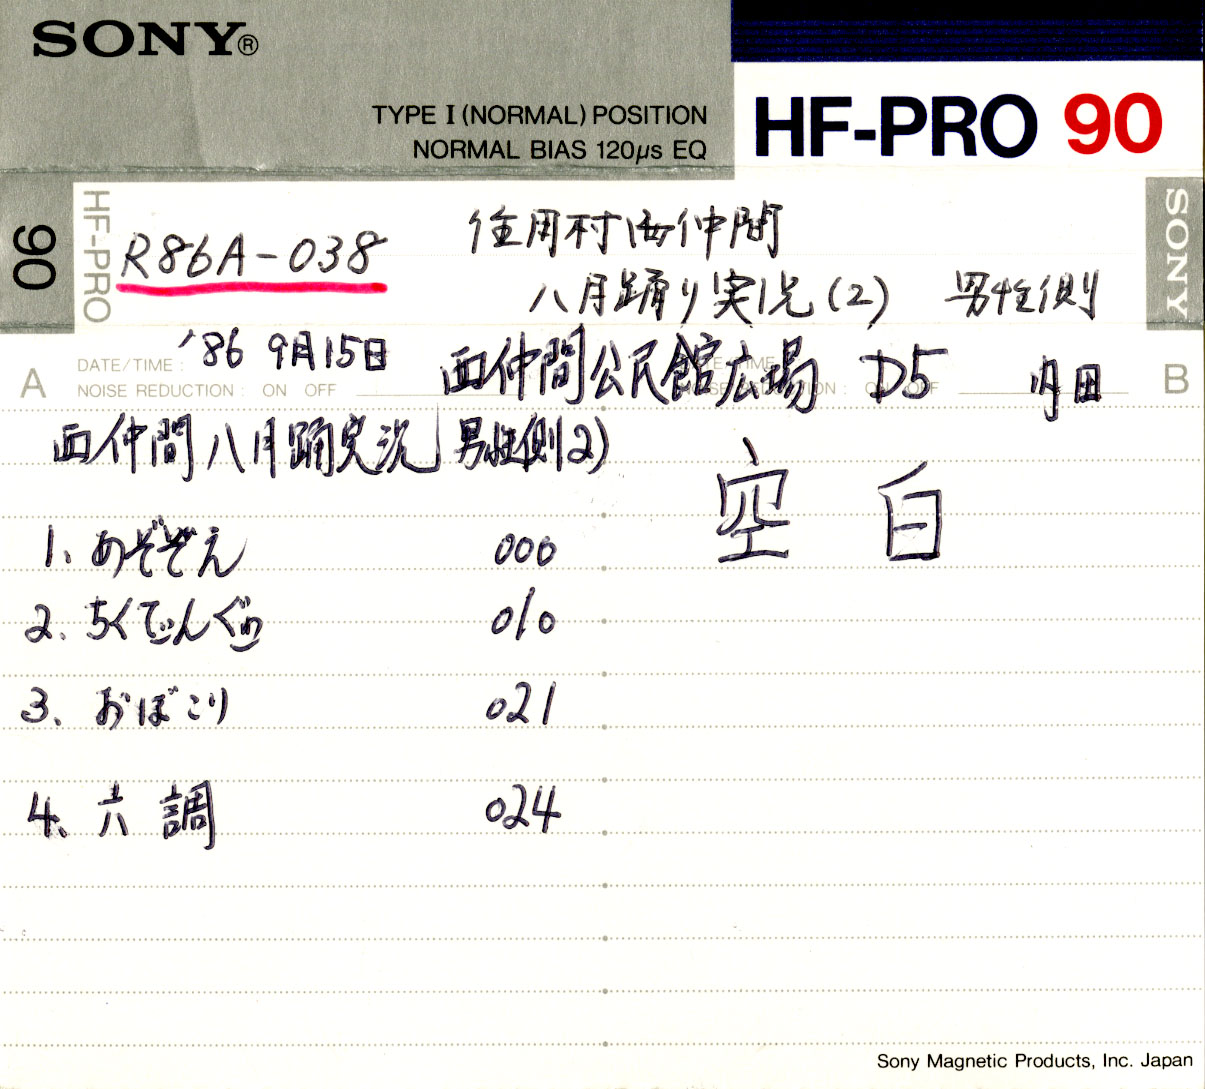 SONY®
TYPE I (NORMAL) POSITION
NORMAL BIAS 120μs EQ
HF-PRO 90
90
HF-PRO
R86A-038
住用村西仲間
八月踊り実況(2) 男性側
SONY
A
DATE/TIME: '86 9月15日
NOISE REDUCTION: ON OFF
西仲間公民館広場 D5 内田
B
西仲間八月踊実況 男性側2)
空白
1. あぞぞえ 000
2. ちくてぃんぐゎ 010
3. おぼこり 021
4. 六調 024
Sony Magnetic Products, Inc. Japan